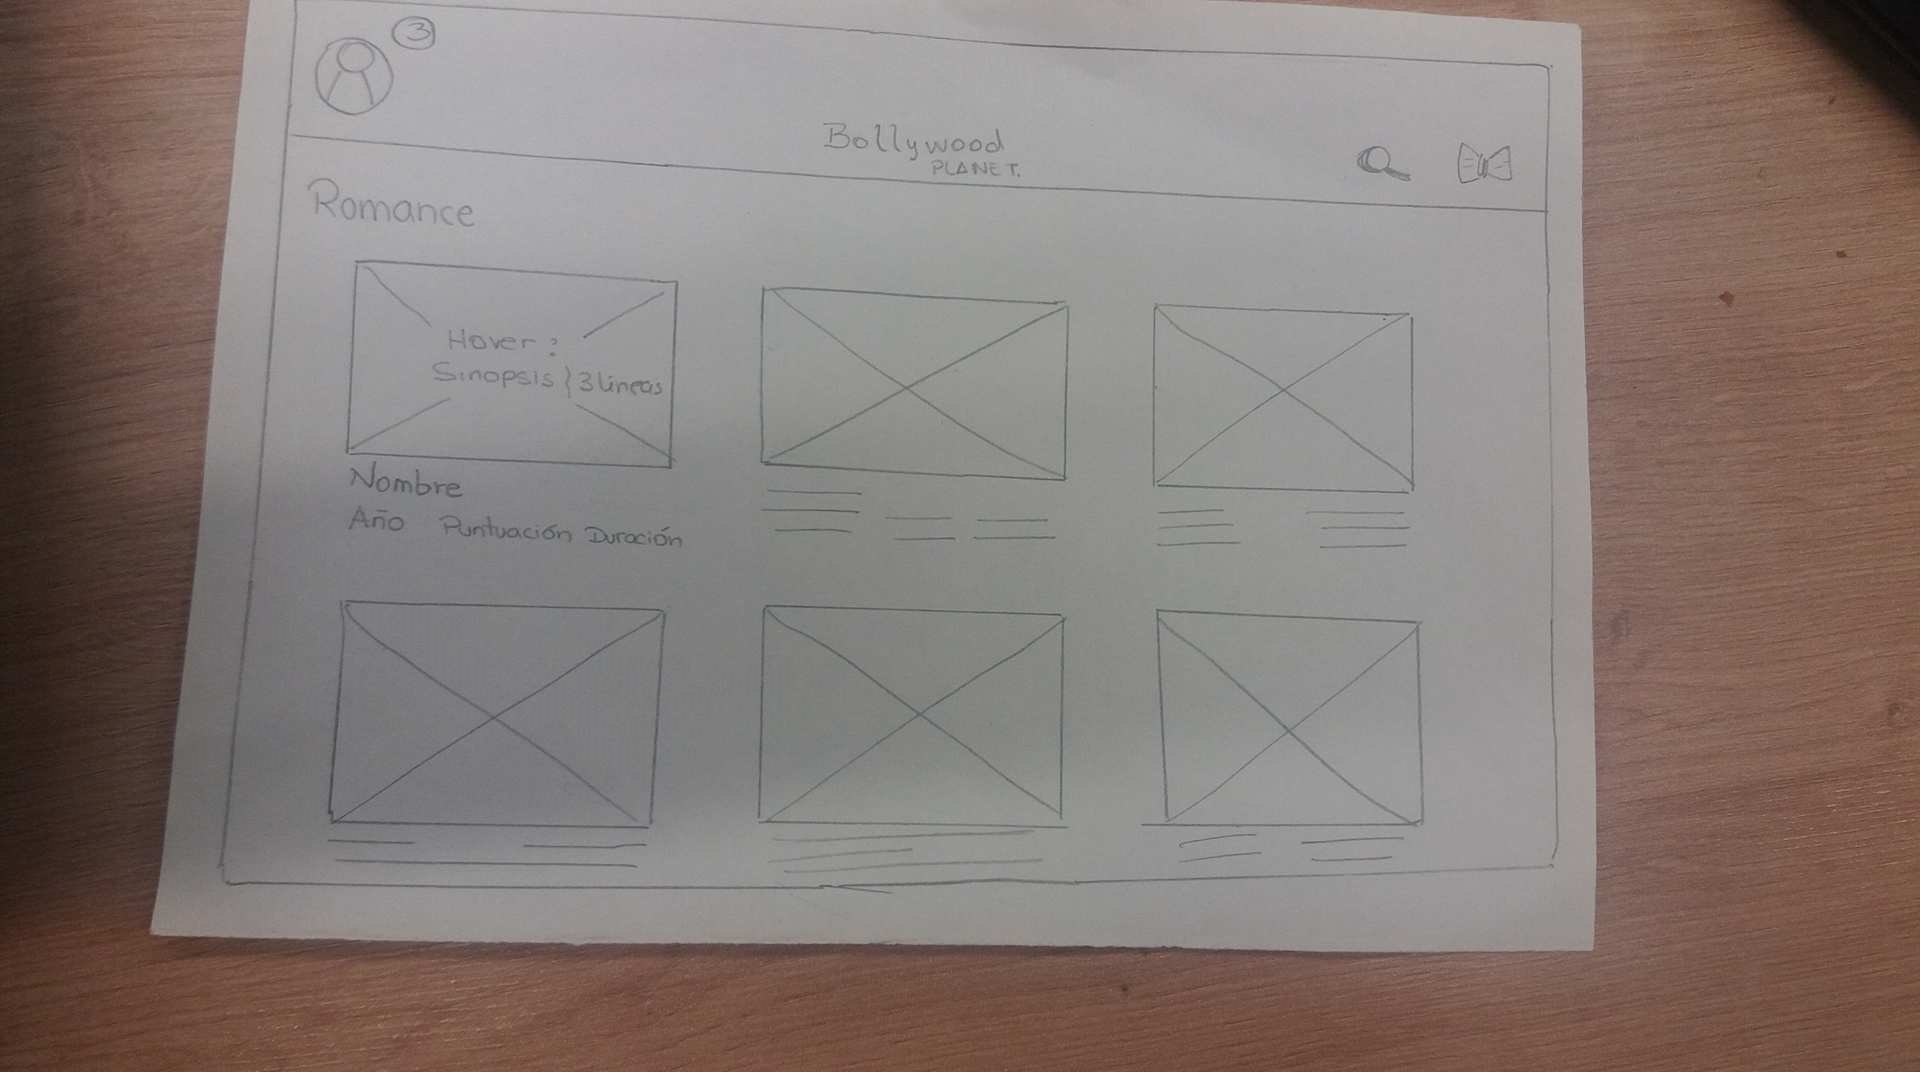 3
Bollywood
PLANET.
Romance
Hover:
Sinopsis } 3 líneas
Nombre
Año Puntuación Duración